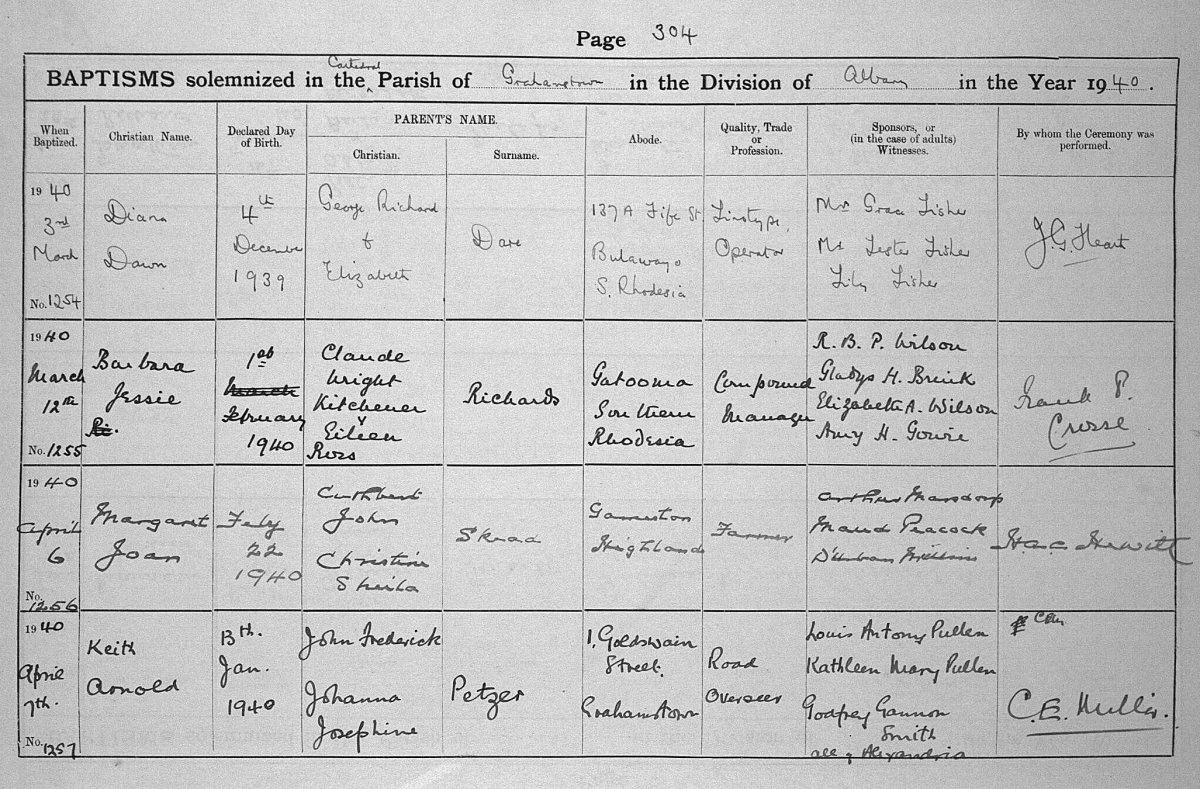 Page 304
Cathedral
BAPTISMS solemnized in the Parish of Grahamstown in the Division of Albany in the Year 1940.
When Baptized.
Christian Name.
Declared Day of Birth.
PARENT'S NAME.
Christian.
Surname.
Abode.
Quality, Trade or Profession.
Sponsors, or (in the case of adults) Witnesses.
By whom the Ceremony was performed.
1940
3rd
March
No. 1254
Diana
Dawn
4th
December
1939
George Richard
&
Elizabeth
Dare
137A Fife St.
Bulawayo
S. Rhodesia
Linotype,
Operator
Mrs Grace Fisher
Mr Lester Fisher
Lily Fisher
J.G. Heart
1940
March
12th
No. 1255
Barbara
Jessie
1st
March
February
1940
Claude
Wright
Kitchener
Eileen
Ross
Richards
Gatooma
Southern
Rhodesia
Compound
Manager
R. B. P. Wilson
Gladys H. Brink
Elizabeth A. Wilson
Amy H. Gowie
Frank P.
Crosse
1940
April
6
No. 1256
Margaret
Joan
Feby
22
1940
Cuthbert
John
Christine
Sheila
Garruston
Highlands
Farmer
Arthur
Maud Peacock
Hewitt
1940
April
7th.
No. 1257
Keith
Arnold
13th.
Jan.
1940
John Frederick
Johanna
Josephine
Petzer
1, Goldswain
Street.
Grahamstown
Road
Overseer
Louis Antony Pullen
Kathleen Mary Pullen
Godfrey Gannon
Smith
all of Alexandria
C.E.